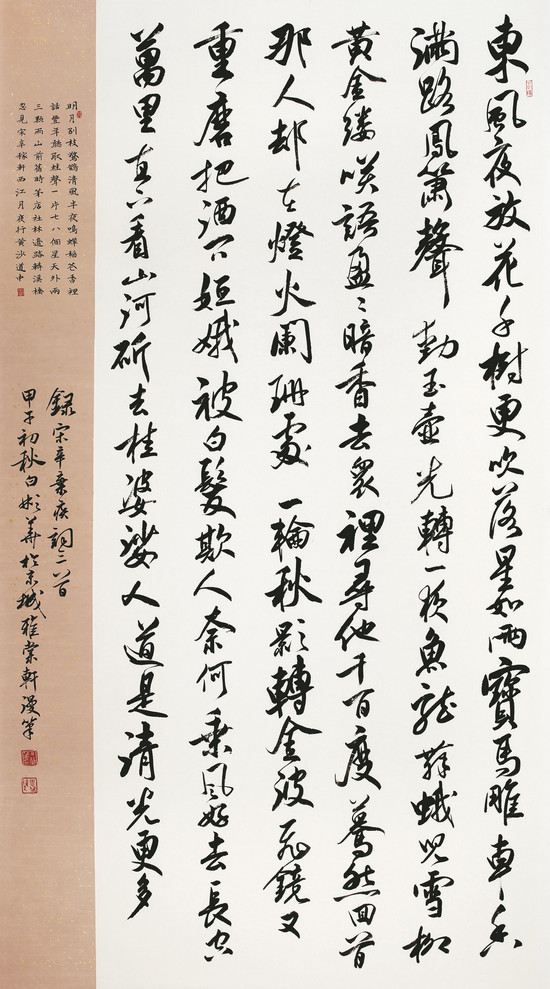 東風夜放花千樹更吹落星如雨寶馬雕車香
滿路鳳簫聲動玉壺光轉一夜魚龍舞蛾兒雪柳
黃金縷咲語盈〻暗香去衆裡尋他千百度驀然回首
那人却在燈火闌珊處一輪秋影轉金波飛鏡又
重磨把酒問姮娥被白髮欺人奈何乘風好去長空
萬里直下看山河斫去桂婆娑人道是清光更多
明月別枝驚鵲清風半夜鳴蟬稻花香裡
話豐年聽取蛙聲一片七八個星天外兩
三點雨山前舊時茅店社林邊路轉溪橋
忽見宋辛稼軒西江月夜行黃沙道中
錄宋辛棄疾詞三首
甲午初秋白彬華於京城雅棠軒漫筆